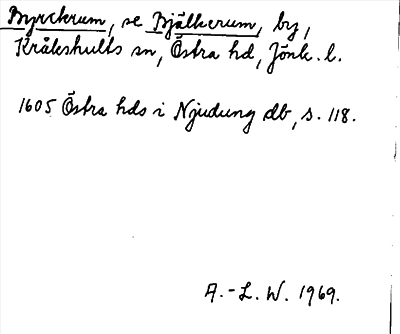 Byrckrum, se Bjälkerum, by,
Kråkshults sn, Östra hd, Jönk. l.
1605 Östra hds i Njudung db, s. 118.
A.-L. W. 1969.